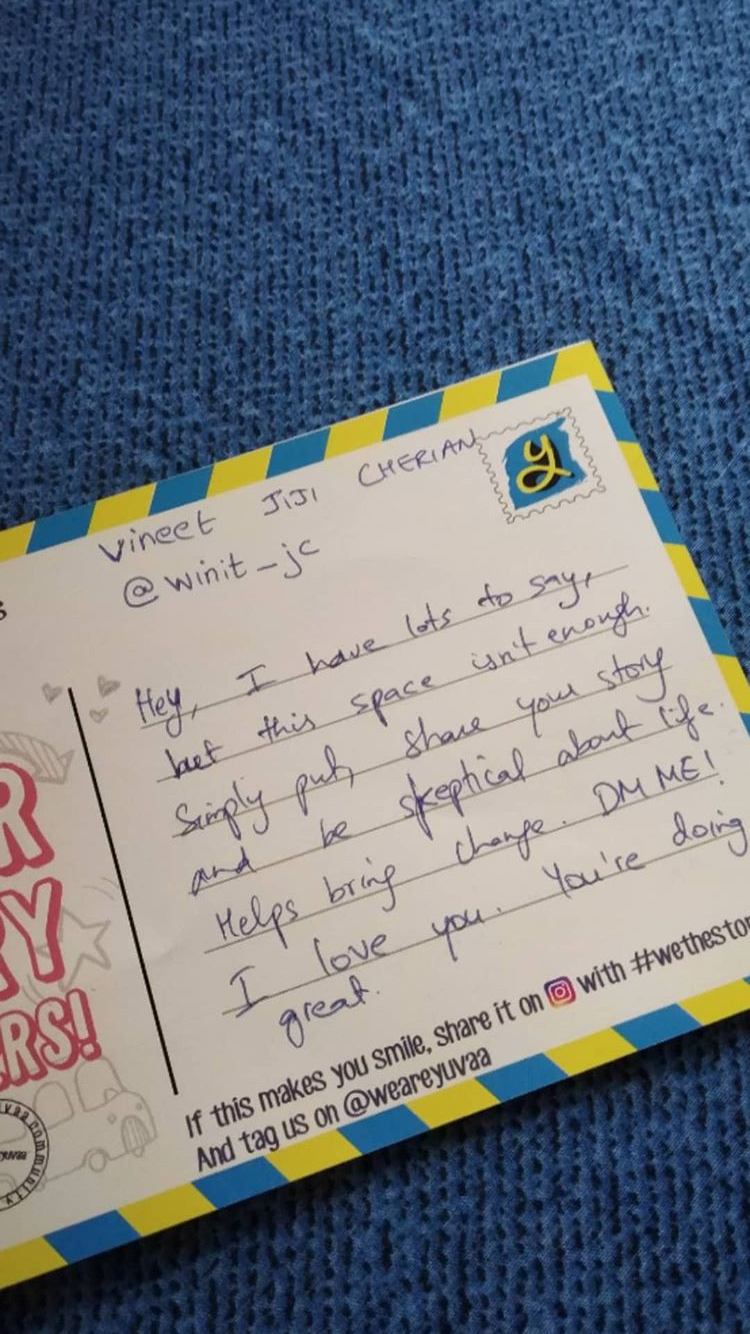 Vineet JIJI CHERIAN
@winit_jc
Hey, I have lots to say,
but this space isn't enough.
Simply put, share your story
and be skeptical about life.
Helps bring change. DM ME!
I love you. You're doing
great.
If this makes you smile, share it on with #wethestor
And tag us on @weareyuvaa
S
R
RY
ERS!
yuvaa community
yuvaa
y